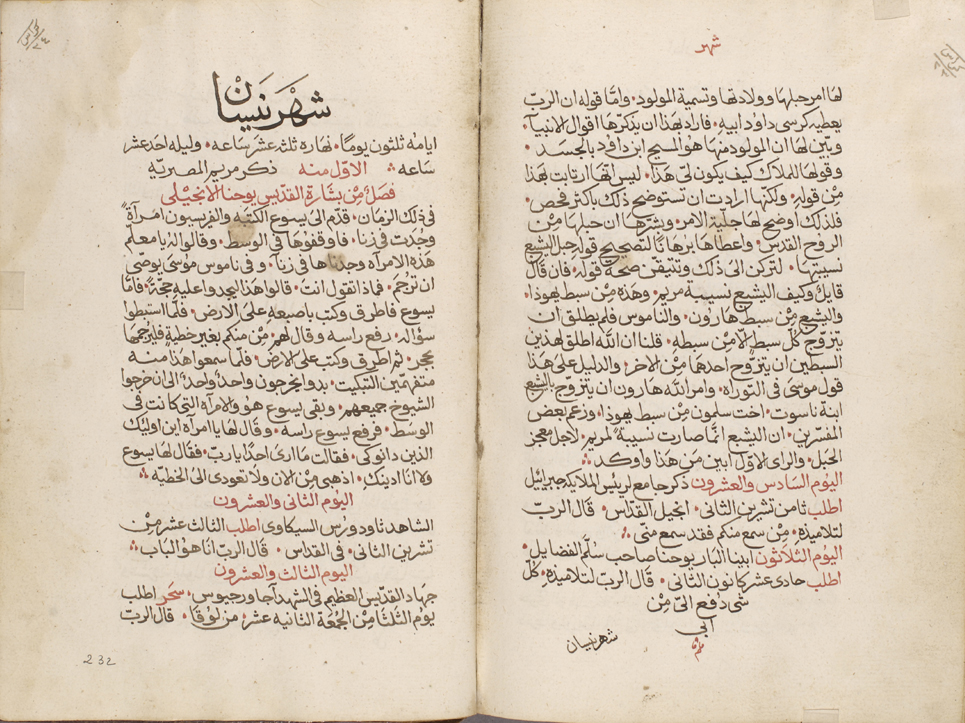 شهر
لها امر حبلها وولادتها وتسمية المولود٠ وامّا قوله ان الربّ
يعطيه كرسي داود ابيه٠ فاراد بهذا ان يذكّرها اقوال الانبيآ٠
وبيّن لها ان المولود منها هو المسيح ابن داود بالجسد٠
وقولها للملاك كيف يكون لي هذا٠ ليس انها ارتابت بهذا
من قوله٠ ولكنّها ارادت ان تستوضح ذلك باكثر فحص٠
فلذلك اوضح لها جليّة الامر٠ وبشرها ان حبلها من
الروح القدس٠ واعطاها برهانًا لتصحيح قوله حبل اليشبع
نسيبتها٠ لتركن الى ذلك وتتيقّن صحة قوله٠ فان قال
قايل وكيف اليشبع نسيبة مريم٠ وهذه من سبط يهوذا٠
واليشبع من سبط هارون٠ والناموس فلم يطلق ان
يتزوّج كلّ سبط الّا من سبطه٠ قلنا ان الله اطلق لهذين
السبطين ان يتزوّج احدهما من الاخر٠ والدليل على هذا
قول موسى في التوراة٠ وامر الله هارون ان يتزوّج باليشبع
ابنة ناسوت٠ اخت سلمون من سبط يهوذا٠ وزعم بعض
المفسّرين٠ ان اليشبع انّما صارت نسيبة لمريم٠ لاجل معجز
الحبل٠ والراى الاوّل ابين من هذا واوكد
اليوم السادس والعشرون ذكر جامع لرئيس الملايكه جبرائيل
اطلب ثامن تشرين الثاني٠ انجيل القدّاس٠ قال الربّ
لتلاميذه٠ من سمع منكم فقد سمع منّي
اليوم الثلاثون ابينا البار يوحنا صاحب سُلّم الفضايل٠
اطلب حادى عشر كانون الثاني٠ قال الربّ لتلاميذه٠ كلّ
شى دُفع اليّ من
ابي
شهر نيسان
شَهْر نَيسَان
ايامه ثلثون يومًا٠ نهاره ثلثه عشر ساعه٠ وليله احد عشر
ساعه الاوّل منه ذكر مريم المصريّه
فصل من بشارة القدّيس يوحنا الانجيلى
فى ذلك الزمان٠ قدّم الى يسوع الكتبه والفرّيسيون امرأةً
وجدت فى زنا٠ فاوقفوها فى الوسط٠ وقالوا له يا معلّم
هذه الامراه وجدناها فى زنآ٠ وفى ناموس موسى يوصى
ان ترجم٠ فماذا تقول انت٠ قالوا هذا ليجدوا عليه حجّة٠ فامّا
يسوع فاطرق وكتب باصبعه على الارض٠ فلّما استبطوا
سؤاله٠ رفع راسه وقال لهم٠ من منكم بغير خطية فليرجمها
بحجر٠ ثم اطرق وكتب على الارض٠ فلّما سمعوا هذا منه
متفهمين التبكيت٠ بدوا يخرجون واحدًا واحدًا الى ان خرجوا
الشيوخ جميعهم٠ وبقى يسوع هو والامرأه التى كانت فى
الوسط٠ فرفع يسوع راسه٠ وقال لها يا امراه اين اوليك
الذين دانوكى٠ فقالت ما ارى احدًا يا ربّ٠ فقال لها يسوع
ولا انا ادينكِ٠ اذهبى من الان ولا تعودى الى الخطيه
اليوم الثانى والعشرون
الشاهد ثاودورس السيكاوى اطلب الثالث عشر من
تشرين الثانى٠ فى القداس٠ قال الربّ انا هو الباب
اليوم الثالث والعشرون
جهاد القدّيس العظيم فى الشهدآ جاورجيوس٠ سَحَر اطلب
يوم الثلثا من الجمعة الثانية عشر٠ من لوقا٠ قال الربّ
232